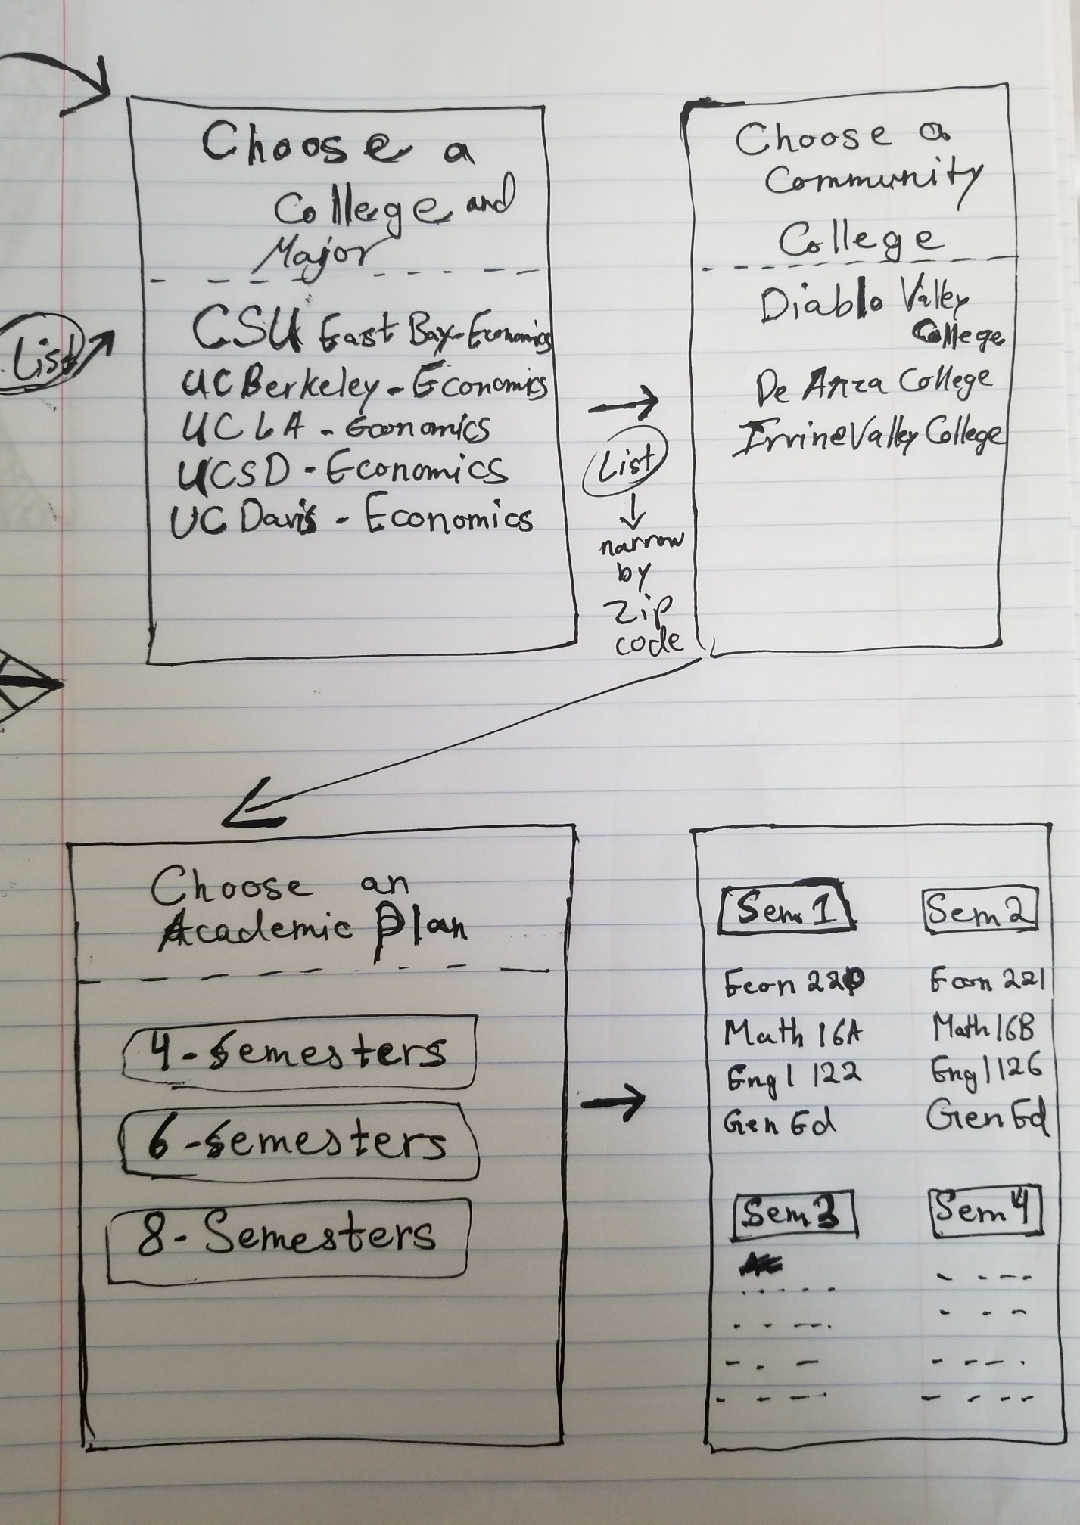 Choose a
College and
Major
List
CSU East Bay-Economics
UC Berkeley - Economics
UCLA - Economics
UCSD - Economics
UC Davis - Economics
List
narrow
by
Zip
code
Choose a
Community
College
Diablo Valley
College
De Anza College
Irvine Valley College
Choose an
Academic Plan
4-Semesters
6-Semesters
8-Semesters
Sem 1
Econ 220
Math 16A
Engl 122
Gen Ed
Sem 2
Econ 221
Math 16B
Engl 126
Gen Ed
Sem 3
Sem 4